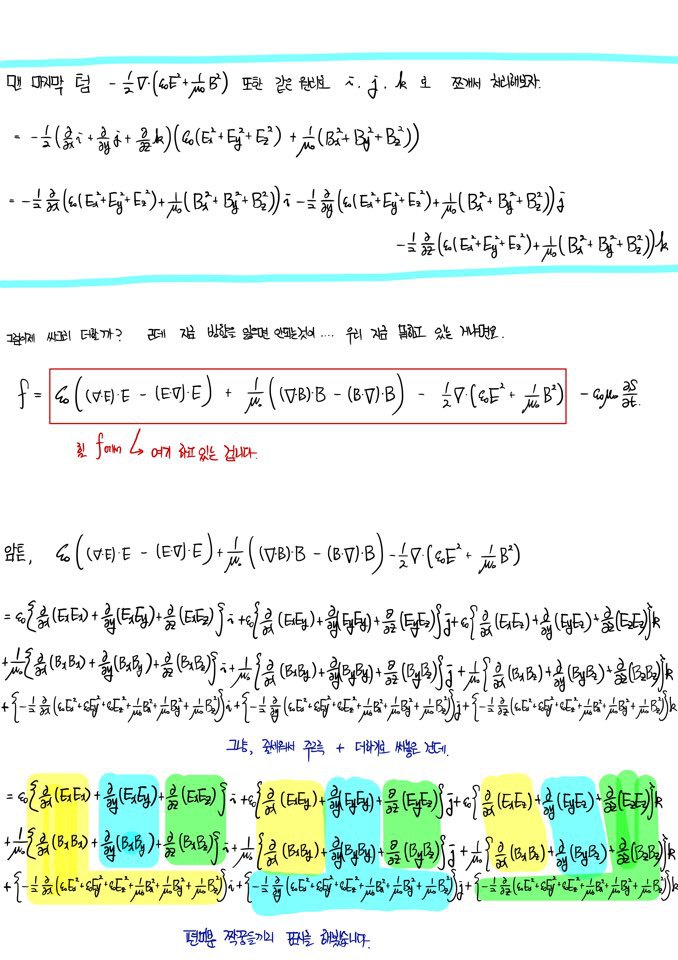 맨 마지막 텀 -½∇·(ε₀E²+1/μ₀ B²) 또한 같은 원리로 i, j, k 로 쪼개서 처리해보자.
= -½(∂/∂x i+∂/∂y j+∂/∂z k)(ε₀(Ex²+Ey²+Ez²) +1/μ₀(Bx²+By²+Bz²))
= -½ ∂/∂x(ε₀(Ex²+Ey²+Ez²)+1/μ₀(Bx²+By²+Bz²))i -½ ∂/∂y(ε₀(Ex²+Ey²+Ez²)+1/μ₀(Bx²+By²+Bz²))j
-½ ∂/∂z(ε₀(Ex²+Ey²+Ez²)+1/μ₀(Bx²+By²+Bz²))k
그럼이제 싸그리 더할까? 근데 지금 방향을 잃으면 안되는것이 .... 우리 지금 뭘하고 있는 거냐면요.
f = ε₀((∇·E)·E - (E·∇)·E) + 1/μ₀((∇·B)·B - (B·∇)·B) - ½∇·(ε₀E² + 1/μ₀ B²) - ε₀μ₀ ∂S/∂t.
힘 f에서 여기 하고 있는 겁니다.
암튼, ε₀((∇·E)·E - (E·∇)·E)+1/μ₀((∇·B)·B - (B·∇)·B)-½∇·(ε₀E² + 1/μ₀ B²)
=ε₀{∂/∂x(ExEx)+∂/∂y(ExEy)+∂/∂z(ExEz)}i+ε₀{∂/∂x(ExEy)+∂/∂y(EyEy)+∂/∂z(EyEz)}j+ε₀{∂/∂x(ExEz)+∂/∂y(EyEz)+∂/∂z(EzEz)}k
+1/μ₀{∂/∂x(BxBx)+∂/∂y(BxBy)+∂/∂z(BxBz)}i+1/μ₀{∂/∂x(BxBy)+∂/∂y(ByBy)+∂/∂z(ByBz)}j+1/μ₀{∂/∂x(BxBz)+∂/∂y(ByBz)+∂/∂z(BzBz)}k
+{-½ ∂/∂x(ε₀Ex²+ε₀Ey²+ε₀Ez²+1/μ₀Bx²+1/μ₀By²+1/μ₀Bz²)}i+{-½ ∂/∂y(ε₀Ex²+ε₀Ey²+ε₀Ez²+1/μ₀Bx²+1/μ₀By²+1/μ₀Bz²)}j+{-½ ∂/∂z(ε₀Ex²+ε₀Ey²+ε₀Ez²+1/μ₀Bx²+1/μ₀By²+1/μ₀Bz²)}k
그냥, 줄세워서 주르륵 + 더하기로 써놓은 건데.
=ε₀{∂/∂x(ExEx)+∂/∂y(ExEy)+∂/∂z(ExEz)}i+ε₀{∂/∂x(ExEy)+∂/∂y(EyEy)+∂/∂z(EyEz)}j+ε₀{∂/∂x(ExEz)+∂/∂y(EyEz)+∂/∂z(EzEz)}k
+1/μ₀{∂/∂x(BxBx)+∂/∂y(BxBy)+∂/∂z(BxBz)}i+1/μ₀{∂/∂x(BxBy)+∂/∂y(ByBy)+∂/∂z(ByBz)}j+1/μ₀{∂/∂x(BxBz)+∂/∂y(ByBz)+∂/∂z(BzBz)}k
+{-½ ∂/∂x(ε₀Ex²+ε₀Ey²+ε₀Ez²+1/μ₀Bx²+1/μ₀By²+1/μ₀Bz²)}i+{-½ ∂/∂y(ε₀Ex²+ε₀Ey²+ε₀Ez²+1/μ₀Bx²+1/μ₀By²+1/μ₀Bz²)}j+{-½ ∂/∂z(ε₀Ex²+ε₀Ey²+ε₀Ez²+1/μ₀Bx²+1/μ₀By²+1/μ₀Bz²)}k
편미분 짝꿍들끼리 표시를 해봤습니다.